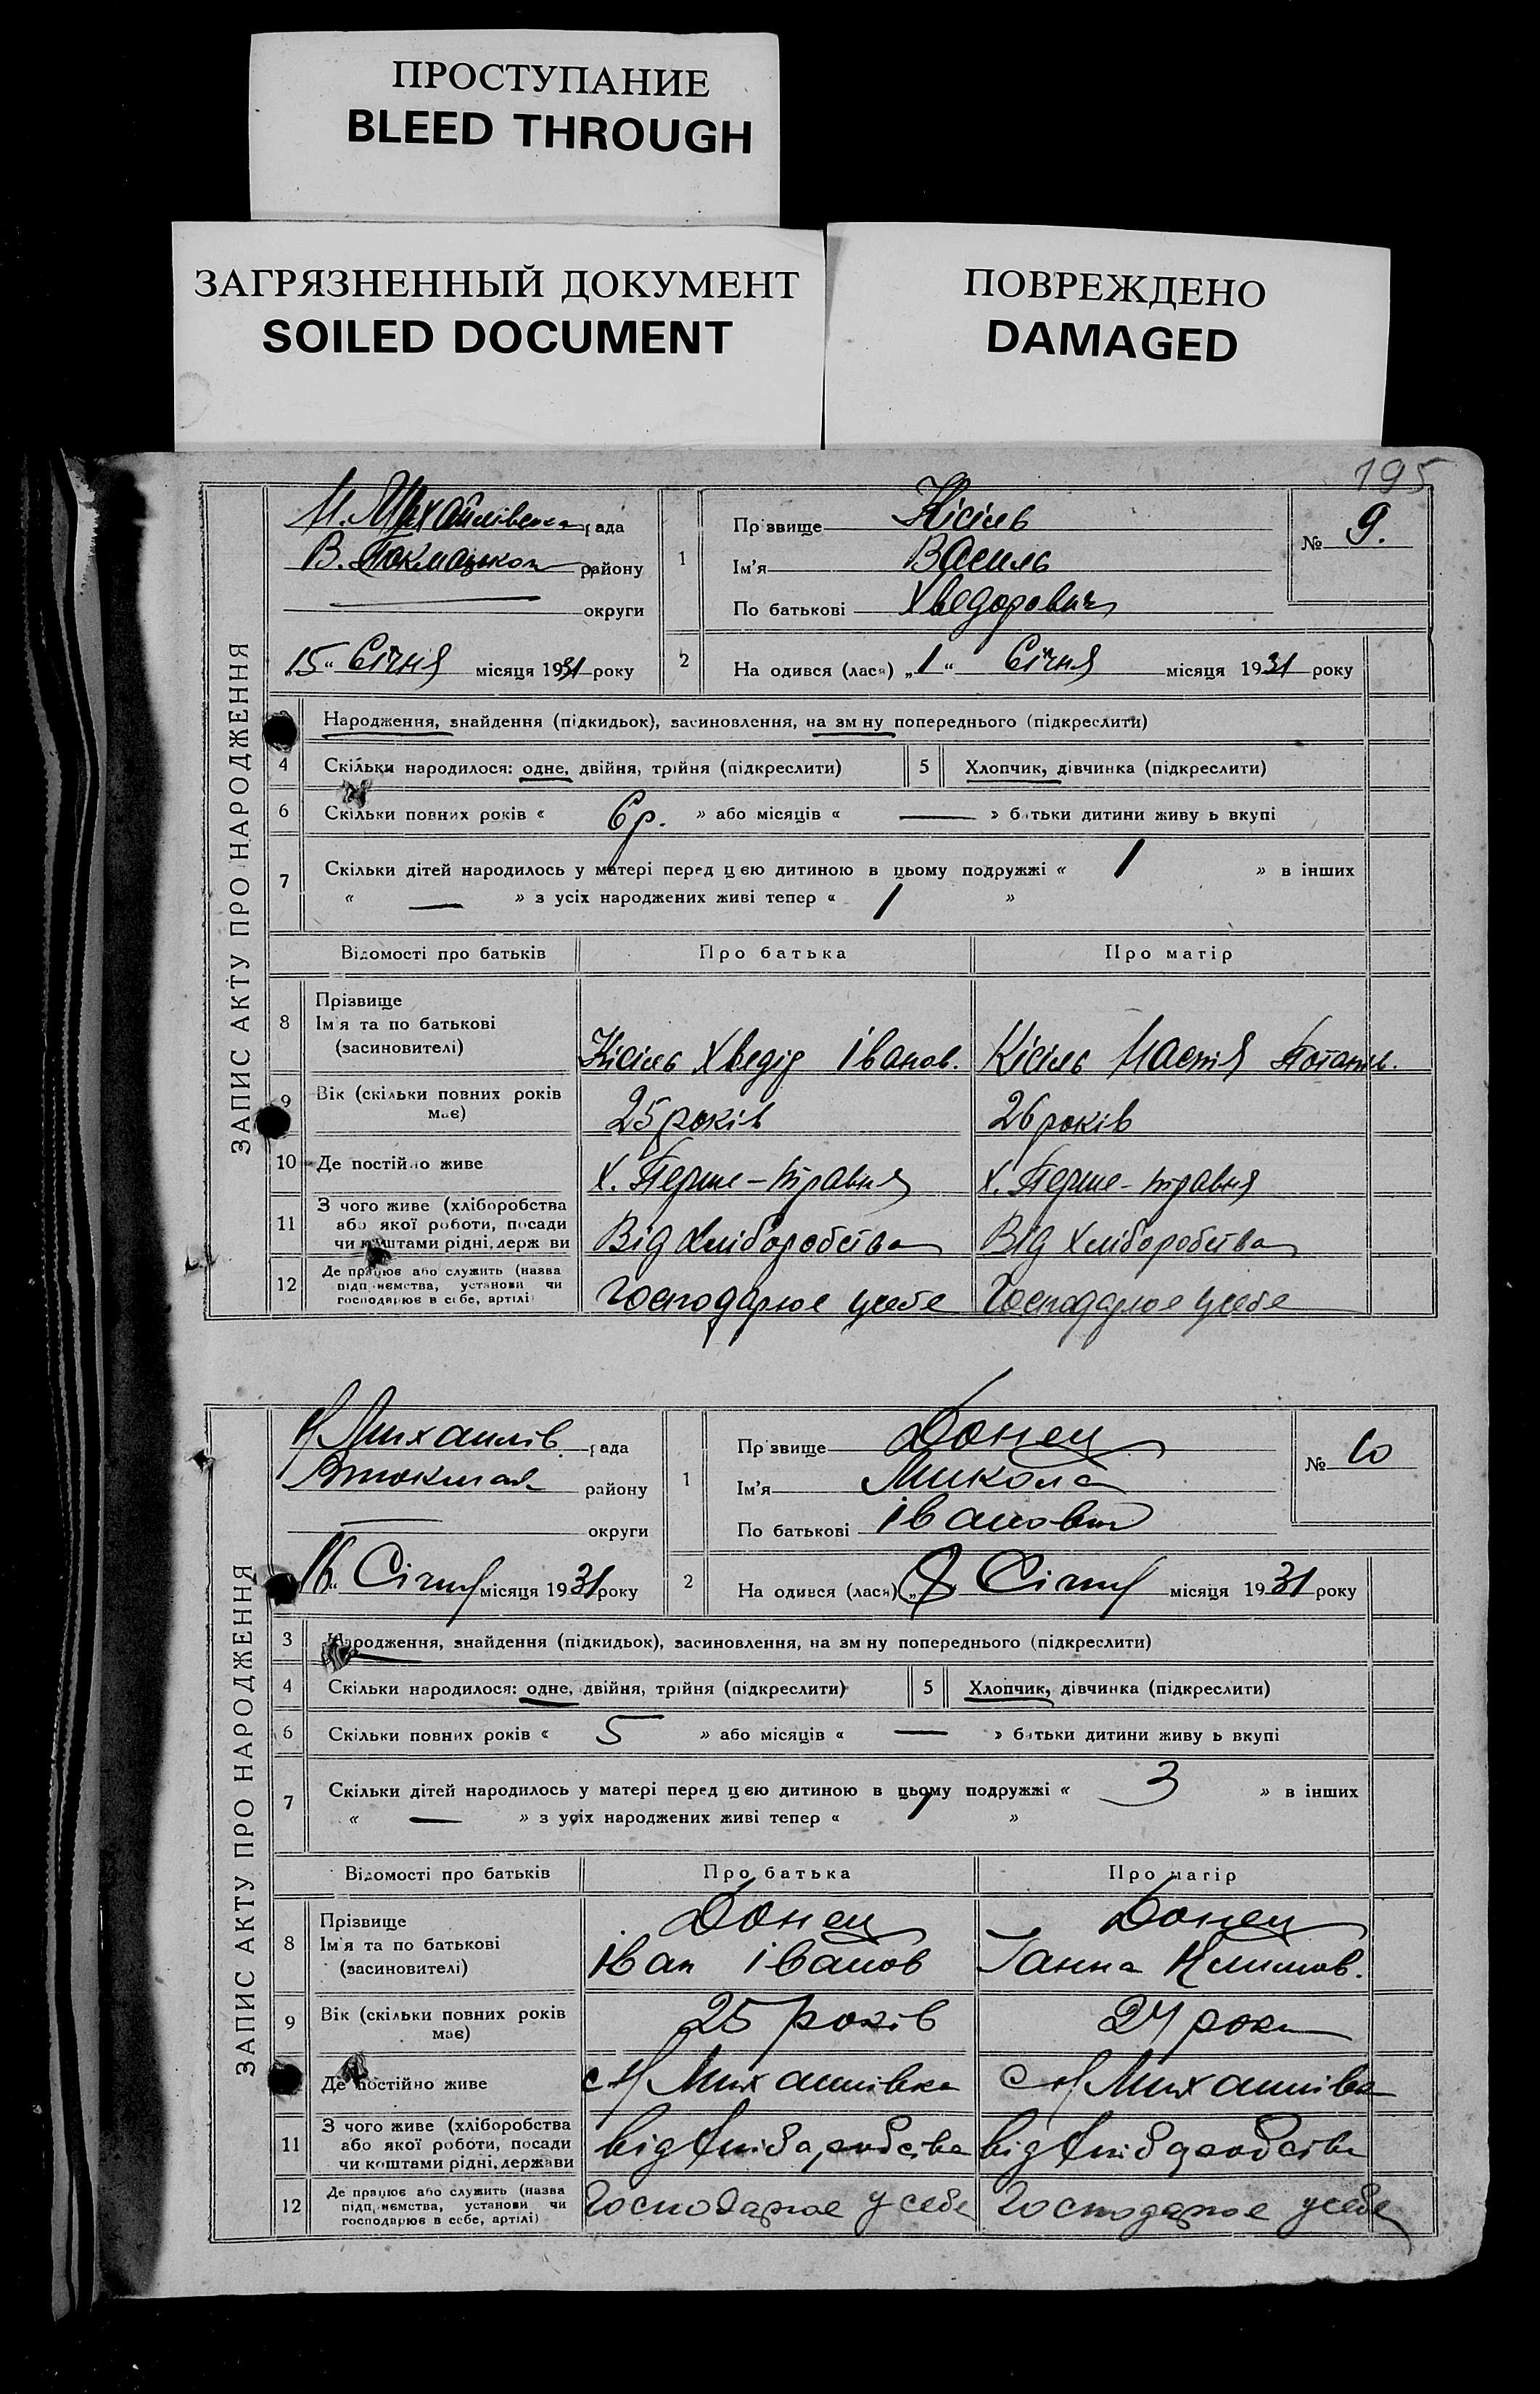 ПРОСТУПАНИЕ
BLEED THROUGH
ЗАГРЯЗНЕННЫЙ ДОКУМЕНТ
SOILED DOCUMENT
ПОВРЕЖДЕНО
DAMAGED
195
ЗАПИС АКТУ ПРО НАРОДЖЕННЯ
Н. Михайлівська рада
В. Токмацьког району
округи
15 “ Січня місяця 1931 року
1 Прізвище Кісіль
Ім'я Василь
По батькові Хведорович
№ 9.
2 На одився (лася) „ 1 “ Січня місяця 1931 року
Народження, знайдення (підкидьок), засиновлення, на зм ну попереднього (підкреслити)
4 Скільки народилося: одне, двійня, трійня (підкреслити) 5 Хлопчик, дівчинка (підкреслити)
6 Скільки повних років « 6 р. » або місяців « — » батьки дитини живу ь вкупі
7 Скільки дітей народилось у матері перед цією дитиною в цьому подружжі « 1 » в інших
« — » з усіх народжених живі тепер « 1 »
Відомості про батьків Про батька Про матір
8 Прізвище
Ім'я та по батькові
(засиновителі)
Кісіль Хведір Іванов. Кісіль Настя Потапів.
9 Вік (скільки повних років має) 25 років 26 років
10 Де постійно живе х. Перше-травня х. Перше-травня
11 З чого живе (хліборобства
або якої роботи, посади
чи коштами рідні, держ ви
Від хліборобства Від хліборобства
12 Де працює або служить (назва
підприємства, установи чи
господарює в себе, артілі)
Господарює усебе Господарює усебе
ЗАПИС АКТУ ПРО НАРОДЖЕННЯ
Н Михайлів. рада
Втокмак району
округи
16 “ Січня місяця 1931 року
1 Прізвище Донец
Ім'я Микола
По батькові Іванович
№ 10
2 На одився (лася) „ Січня місяця 1931 року
3 Народження, знайдення (підкидьок), засиновлення, на зм ну попереднього (підкреслити)
4 Скільки народилося: одне, двійня, трійня (підкреслити) 5 Хлопчик, дівчинка (підкреслити)
6 Скільки повних років « 5 » або місяців « — » батьки дитини живу ь вкупі
7 Скільки дітей народилось у матері перед цією дитиною в цьому подружжі « 3 » в інших
« — » з усіх народжених живі тепер « »
Відомості про батьків Про батька Про матір
8 Прізвище
Ім'я та по батькові
(засиновителі)
Донец Донец
Іван Іванов Ганна Климов.
9 Вік (скільки повних років має) 25 років 24 роки
Де постійно живе с Н Михайлівка с Н Михайлівка
11 З чого живе (хліборобства
або якої роботи, посади
чи коштами рідні, держави
від хліборобства від хліборобства
12 Де працює або служить (назва
підприємства, установи чи
господарює в себе, артілі)
Господарює у себе Господарює усебе